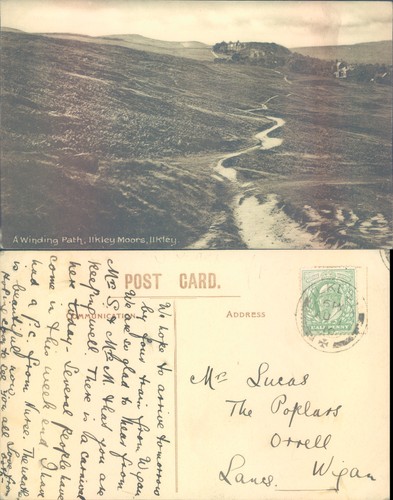 A Winding Path, Ilkley Moors, Ilkley.
POST CARD.
COMMUNICATION.
ADDRESS
HALF PENNY
We hope to arrive tomorrow
by four train from Wigan
We are so glad to hear from
Mrs S. & Mrs M. that you are
keeping well There is a carnival
here today - Several people have
come in this week end I have
had a p.c. from Nurse. The weather
is beautiful now. Love from
to see you all
Mrs Lucas
The Poplars
Orrell
Wigan
Lancs.